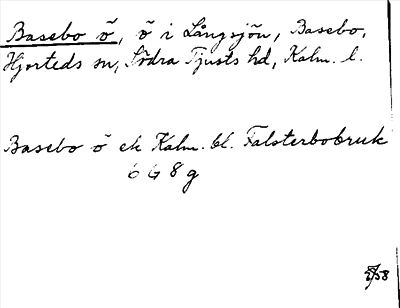 Basebo ö, ö i Långsjön, Basebo,
Hjorteds sn, Södra Tjusts hd, Kalm. l.
Basebo ö ek Kalm. bl. Falsterbobruk
6 G 8 g